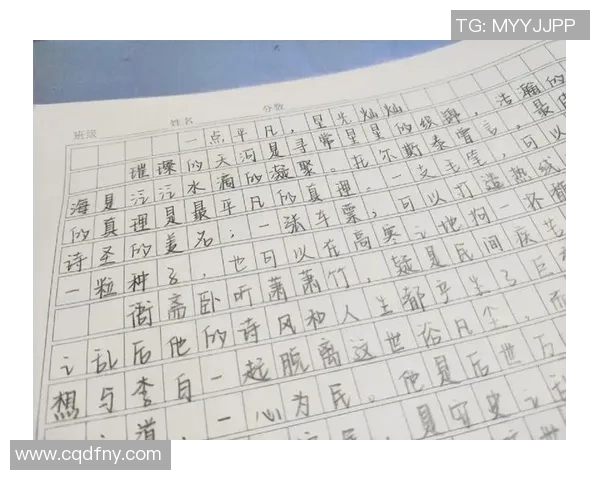 TG: MYYJJPP
班级 姓名 分数
一点平凡，星光灿灿
璀璨的天河是寻常星星的织舞，浩瀚的
海是汪汪水滴的凝聚。托尔斯泰曾言，最
的真理是最平凡的真理。一支毛笔，可以
诗圣的美名；一张车票，可以打造热线
一粒种子，也可以在高寒之地向一怀
衙斋卧听萧萧竹，疑是民间疾苦
之乱后他的诗风和人生都乎生了巨
想与李白一起脱离这世俗凡尘，而
之道，一心为民。他是后世万
是守史之
www.cqdfny.com